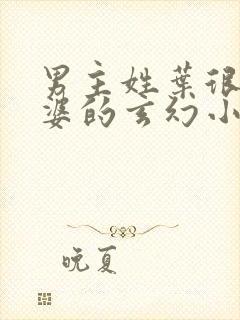 男主姓葉很
婆的玄幻小
晚夏